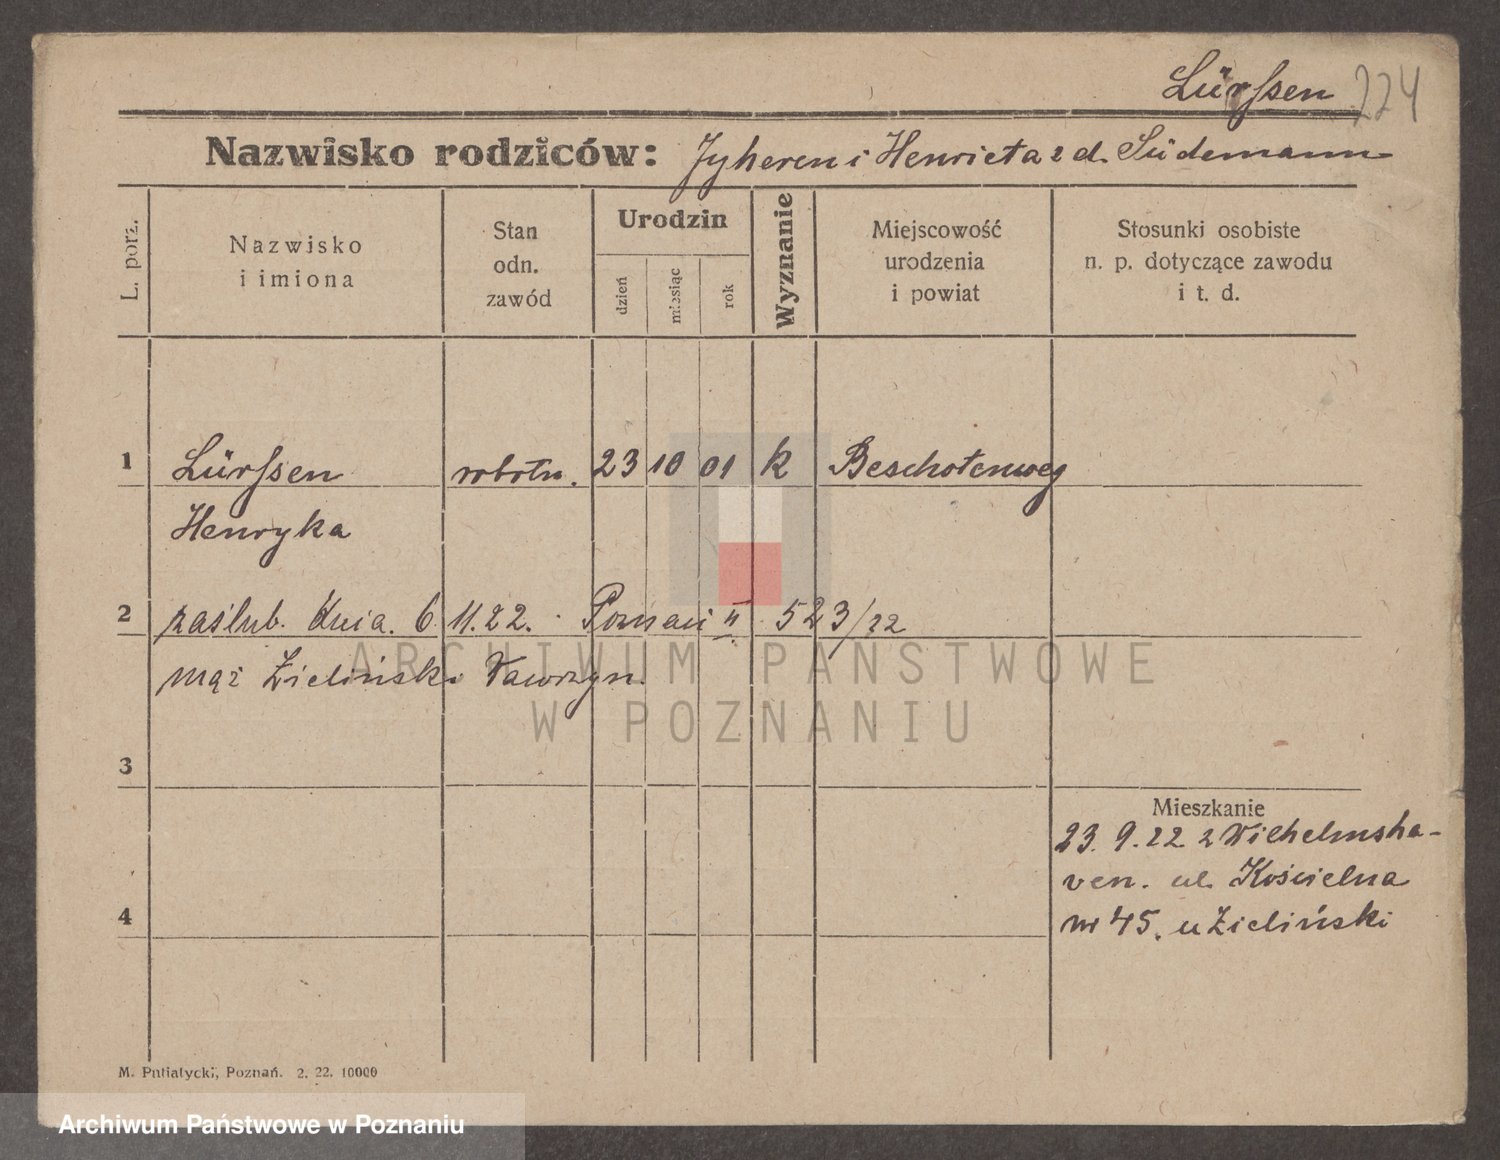 Lürssen 224
Nazwisko rodziców: Jyheren i Henrieta z d. Südemann
L. porz.
Nazwisko
i imiona
Stan
odn.
zawód
Urodzin
dzień
miesiąc
rok
Wyznanie
Miejscowość
urodzenia
i powiat
Stosunki osobiste
n. p. dotyczące zawodu
i t. d.
1 Lürssen robotn. 23 10 01 k Beschotenweg
Henryka
2 zaślub. dnia. 6 11.22. Poznań II 523/22
mąż Zieliński Wawrzyn.
ARCHIWUM PAŃSTWOWE
W POZNANIU
3
Mieszkanie
23. 9. 22 z Wilhelmsha-
ven. ul. Kościelna
4 nr 45. u Zieliński
M. Putiatycki, Poznań. 2. 22. 10000
Archiwum Państwowe w Poznaniu